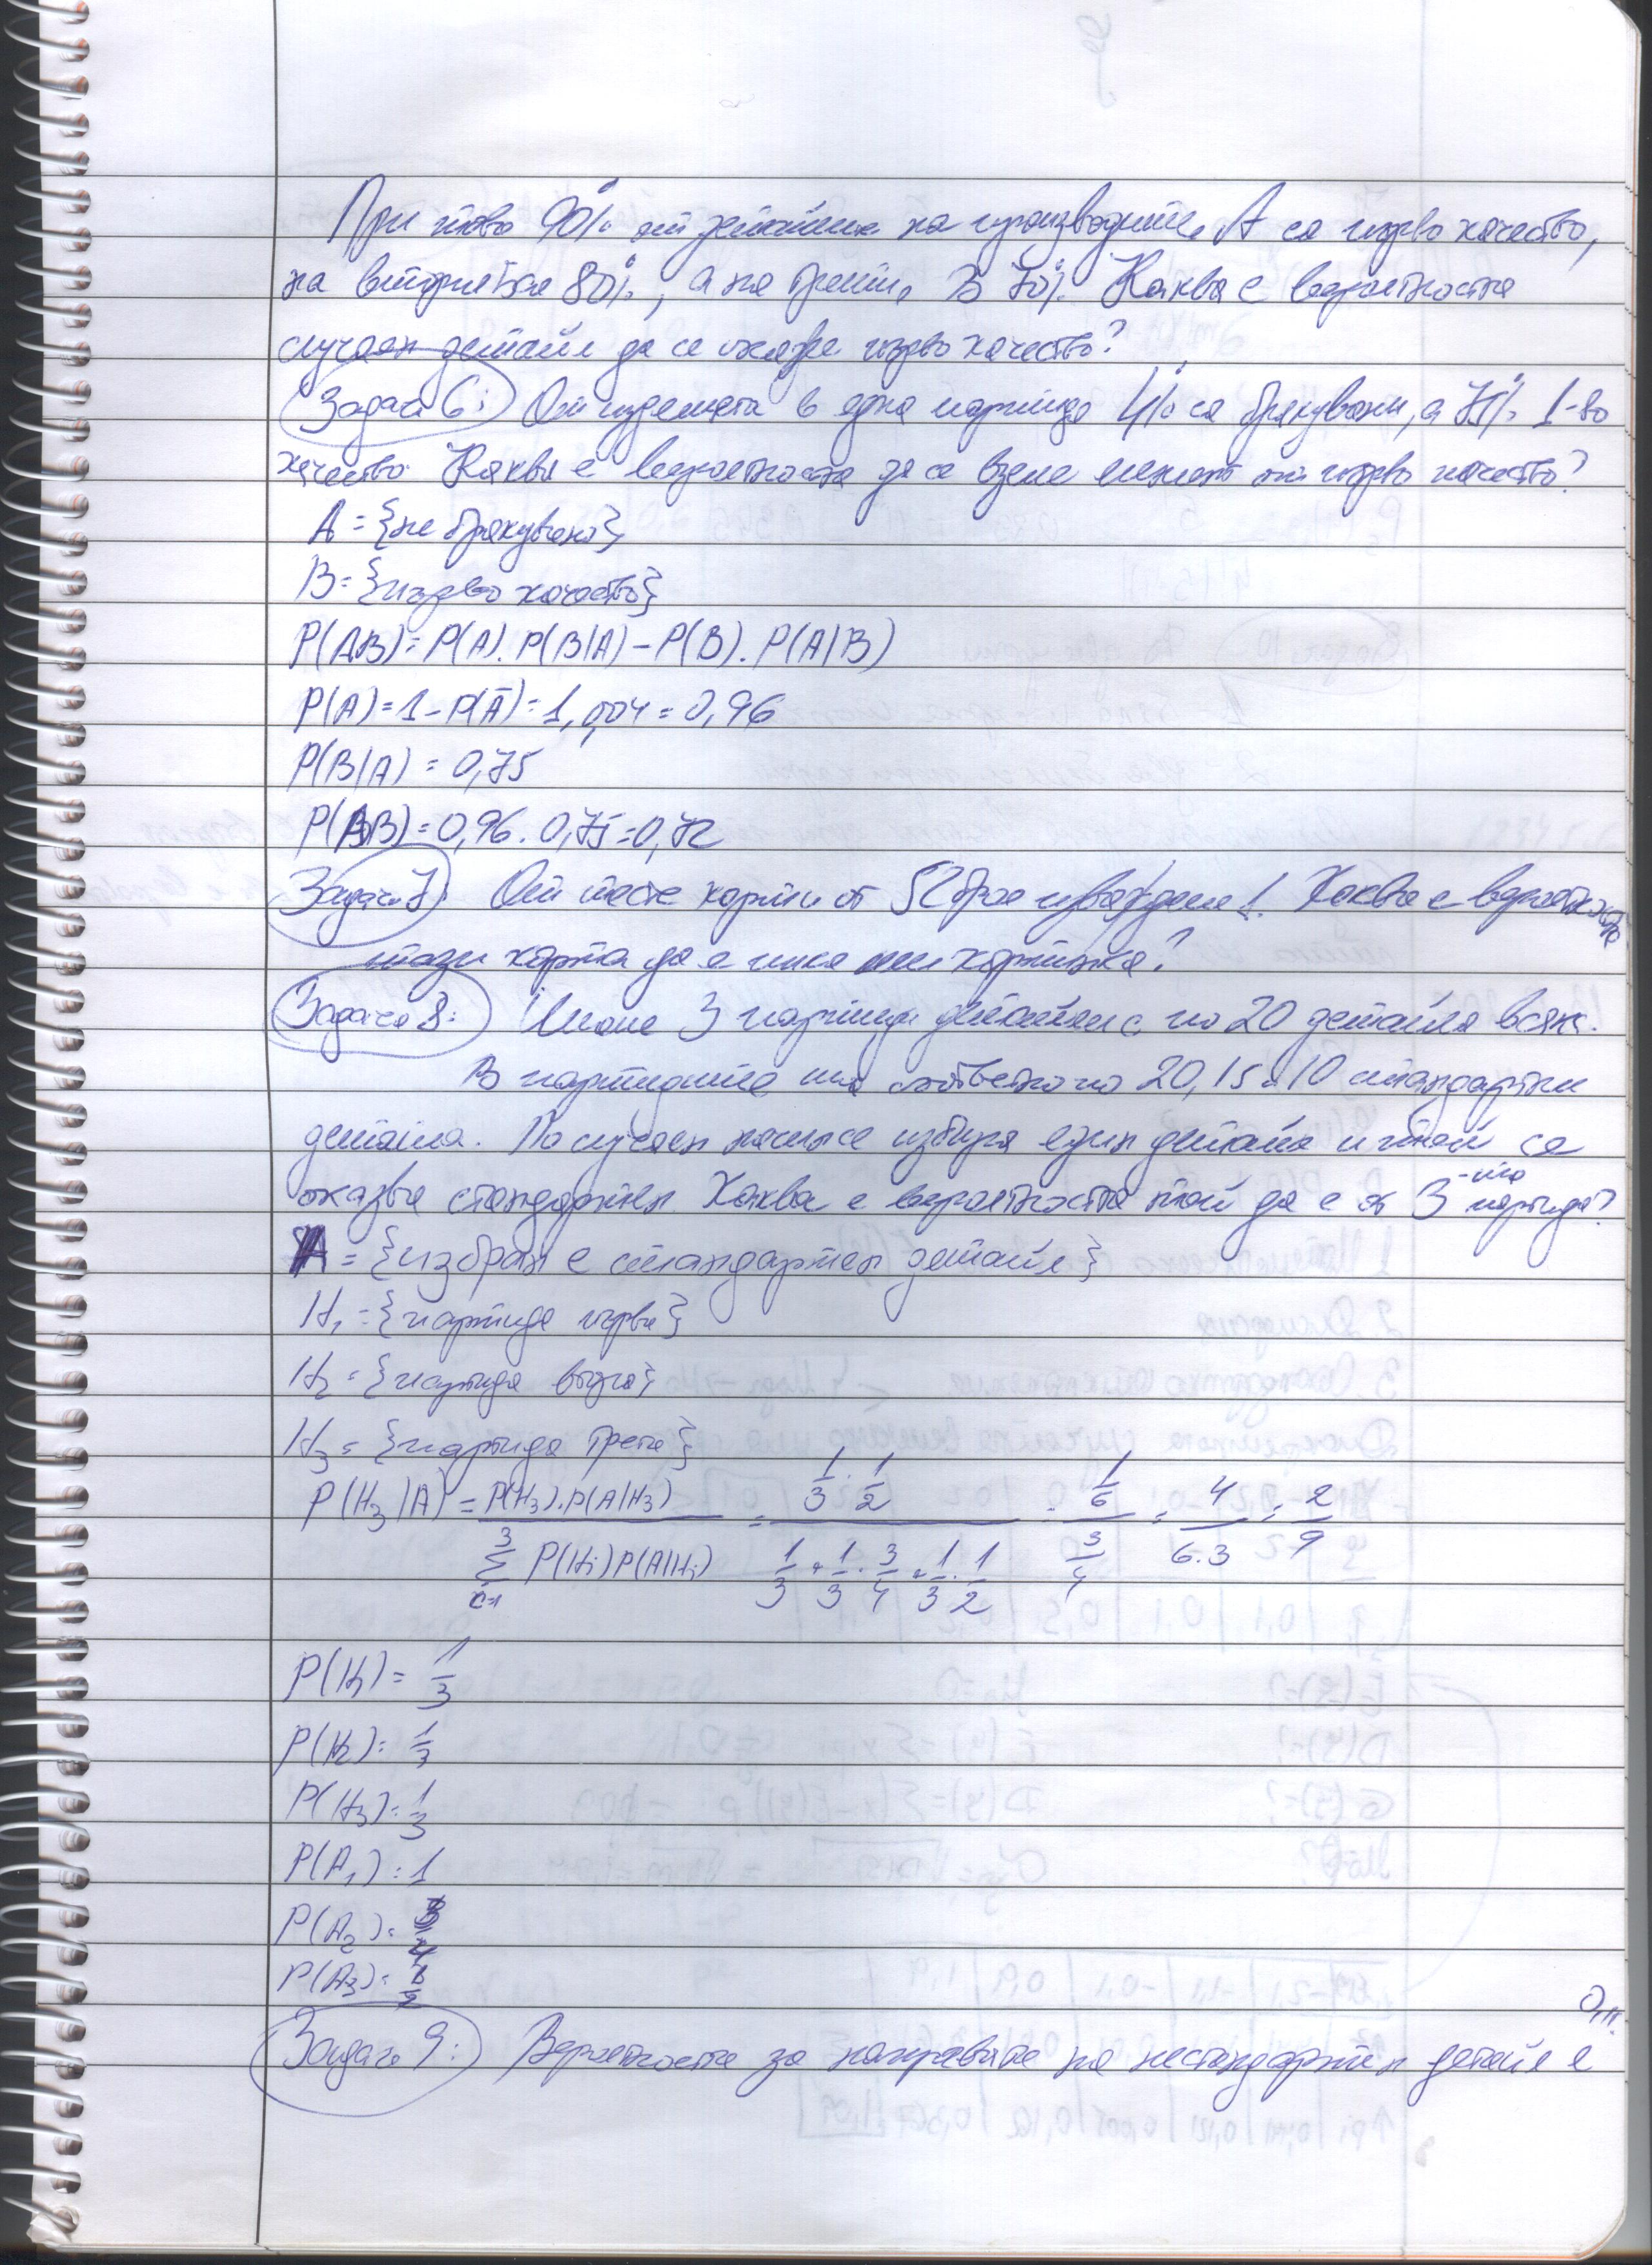 При това 90% от детайлите на производител A са първо качество,
на втория са 80%, а на трети, В 70%. Каква е вероятността
случаен детайл да се окаже първо качество?
Задача 6: От изделията в една партида 4% са бракувани, а 75% 1-во
качество. Каква е вероятността да се вземе от първо качество?
A = {не бракувано}
B = {първо качество}
P(AB) = P(A). P(B|A) = P(B). P(A|B)
P(A) = 1 - P(Ā) = 1,004 = 0,96
P(B|A) = 0,75
P(AB) = 0,96 . 0,75 = 0,72
Задача 7: От тесте карти от 52 броя изваждаме 1. Каква е вероятността
тази карта да е пика или картинка?
Задача 8: Имаме 3 партиди детайли с по 20 детайла всяка.
В партидите има съответно по 20, 15 и 10 стандартни
детайла. По случаен начин се избира един детайл и той се
оказва стандартен. Каква е вероятността той да е от 3-та партида?
A = {избран е стандартен детайл}
H₁ = {партида първа}
H₂ = {партида втора}
H₃ = {партида трета}
P(H₃|A) = P(H₃).P(A|H₃) / Σ P(Hᵢ)P(A|Hᵢ) = (1/3 . 1/2) / (1/3 + 1/3 . 3/4 + 1/3 . 1/2) = (1/6) / (3/4) = 4 / 6.3 = 2/9
P(H₁) = 1/3
P(H₂) = 1/3
P(H₃) = 1/3
P(A₁) = 1
P(A₂) = 3/4
P(A₃) = 1/2
Задача 9: Вероятността за направата на нестандартен детайл е 0,11.